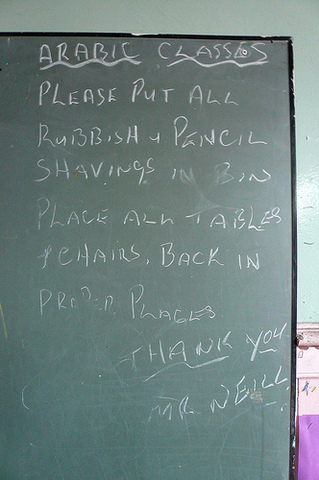 ARABIC CLASSES
PLEASE PUT ALL
RUBBISH & PENCIL
SHAVINGS IN BIN
PLACE ALL TABLES
& CHAIRS, BACK IN
PROPER PLACES
THANK YOU
MR NEILL.